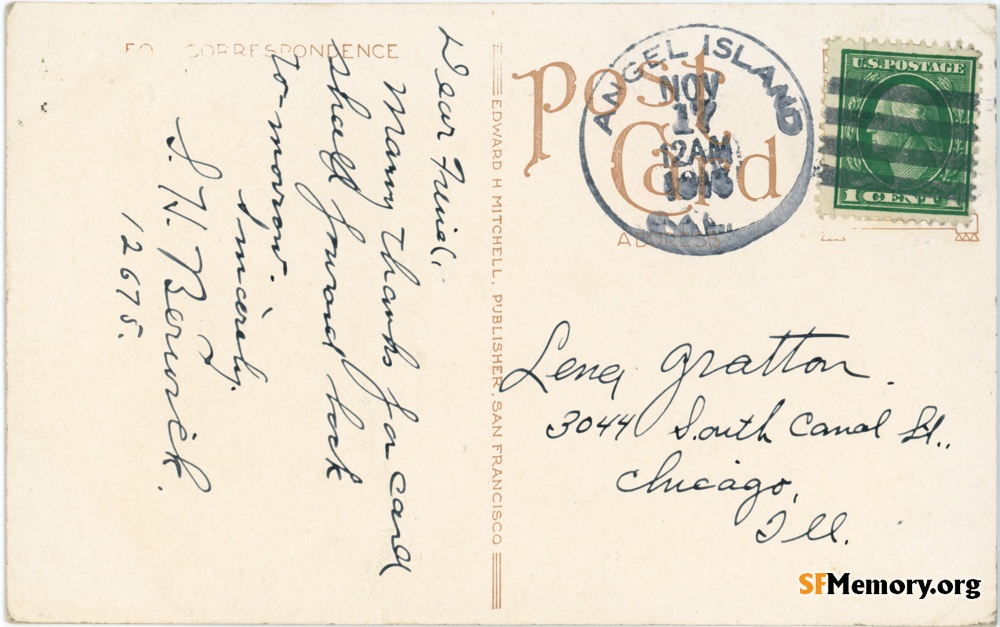 FOR CORRESPONDENCE
Dear Friend,
Many thanks for card
shall forward book
to-morrow.
Sincerely,
S. H. Berwick.
12675.
EDWARD H MITCHELL, PUBLISHER, SAN FRANCISCO
Post
Card
ADDRESS
ANGEL ISLAND
NOV
17
12AM
CAL.
U.S. POSTAGE
1 CENT 1
Lena Gratton.
3044 South Canal St.,
Chicago,
Ill.
SFMemory.org